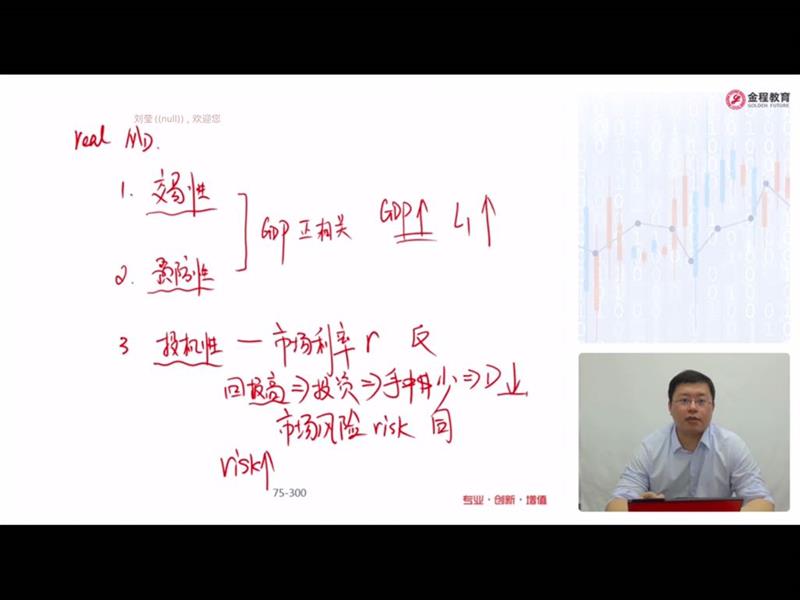 刘莹 ((null)) , 欢迎您
金程教育
GOLDEN FUTURE
real MD.
1. 交易性
GDP 正相关 GDP↑ L₁↑
2. 预防性
3 投机性 — 市场利率 r 反
回报高 ⇒ 投资 ⇒ 手中 少 ⇒ D
市场风险 risk 同
risk↑
75-300
专业·创新·增值